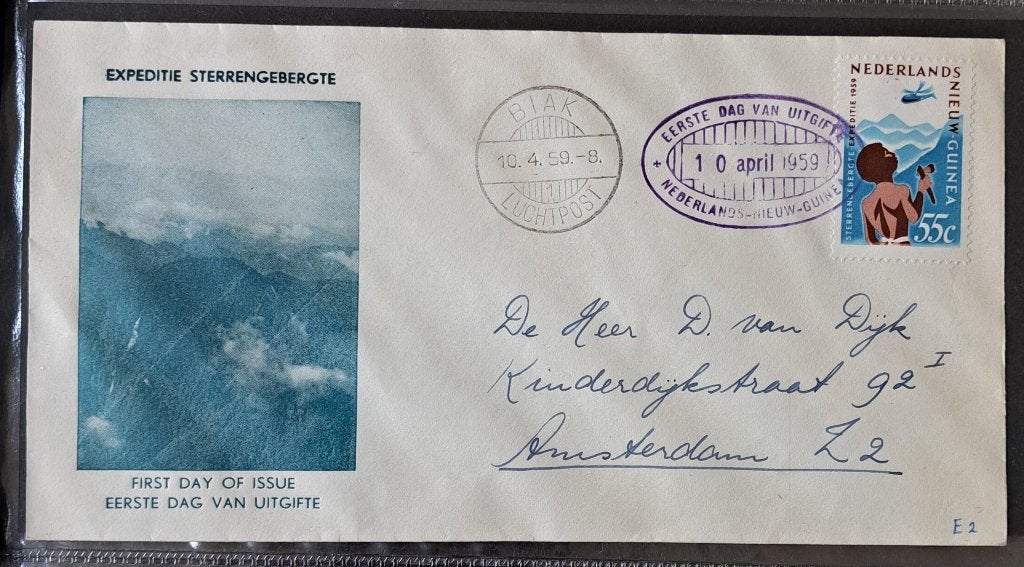 EXPEDITIE STERRENGEBERGTE
FIRST DAY OF ISSUE
EERSTE DAG VAN UITGIFTE
BIAK
10.4.59.-8.
1
LUCHTPOST
EERSTE DAG VAN UITGIFTE
+ 10 april 1959
NEDERLANDS-NIEUW-GUINE
NEDERLANDS NIEUW-GUINEA
STERRENGEBERGTE-EXPEDITIE 1959
55c
De Heer D. van Dijk
Kinderdijkstraat 92 I
Amsterdam Z2
E2